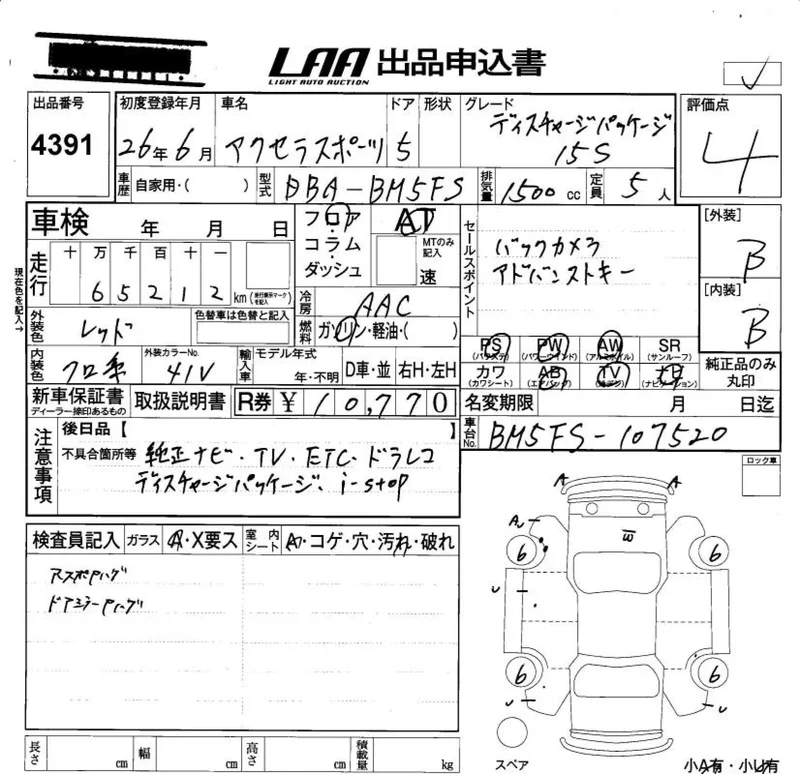 LAA 出品申込書
LIGHT AUTO AUCTION
出品番号 初度登録年月 車名 ドア 形状 グレード 評価点
4391 26年6月 アクセラスポーツ 5 ディスチャージパッケージ 15S 4
車歴 自家用・( ) 型式 DBA-BM5FS 排気量 1500cc 定員 5人
車検 年 月 日 フロア・コラム・ダッシュ AT MTのみ記入 速
セールスポイント バックカメラ
アドバンストキー
[外装] B
[内装] B
現在色を記入→
走行 十 万 千 百 十 一
6 5 2 1 2 km (走行表示マークを記入)
冷房 AAC
外装色 レッド 色替車は色替と記入 燃料 ガソリン・軽油・( )
PS (パワステ) PW (パワーウインド) AW (アルミホイル) SR (サンルーフ)
カワ (カワシート) AB (エアバッグ) TV ナビ (ナビゲーション)
純正品のみ丸印
内装色 クロ系 外装カラーNo. 41V 輸入車 モデル年式 年・不明 D車・並 右H・左H
新車保証書 ディーラー捺印あるもの 取扱説明書 R券 ¥ 10,770
名変期限 月 日迄
車台No. BM5FS-107520
注意事項 後日品【 】
不具合箇所等 純正ナビ・TV・ETC・ドラレコ
ディスチャージパッケージ、i-stop
ロック車
検査員記入 ガラス A・X要ス 室内シート A・コゲ・穴・汚れ・破れ
ドアミラー
A A
A
W
6 6
U
6 6
U U
長さ cm 幅 cm 高さ cm 積載量 kg
スペア
小A有・小U有